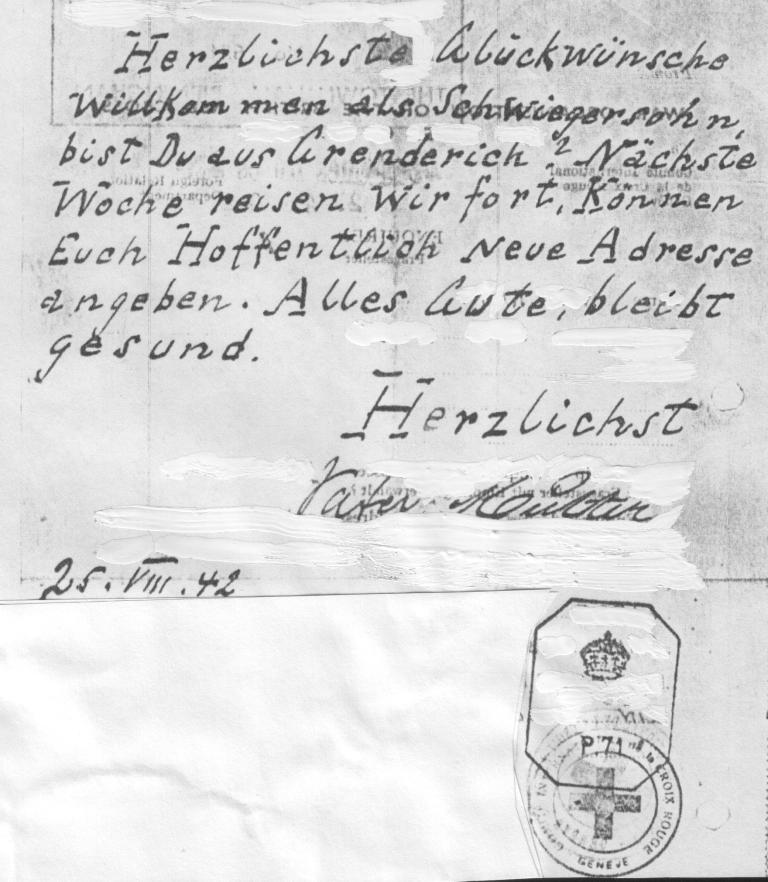 Herzlichste Glückwünsche
Willkommen als Schwiegersohn,
bist Du aus Grenderich? Nächste
Woche reisen wir fort, Können
Euch Hoffentlich Neue Adresse
angeben. Alles Gute, bleibt
gesund.
Herzlichst
Vater Mutter
25.VIII.42
P.71
CROIX ROUGE
GENÈVE